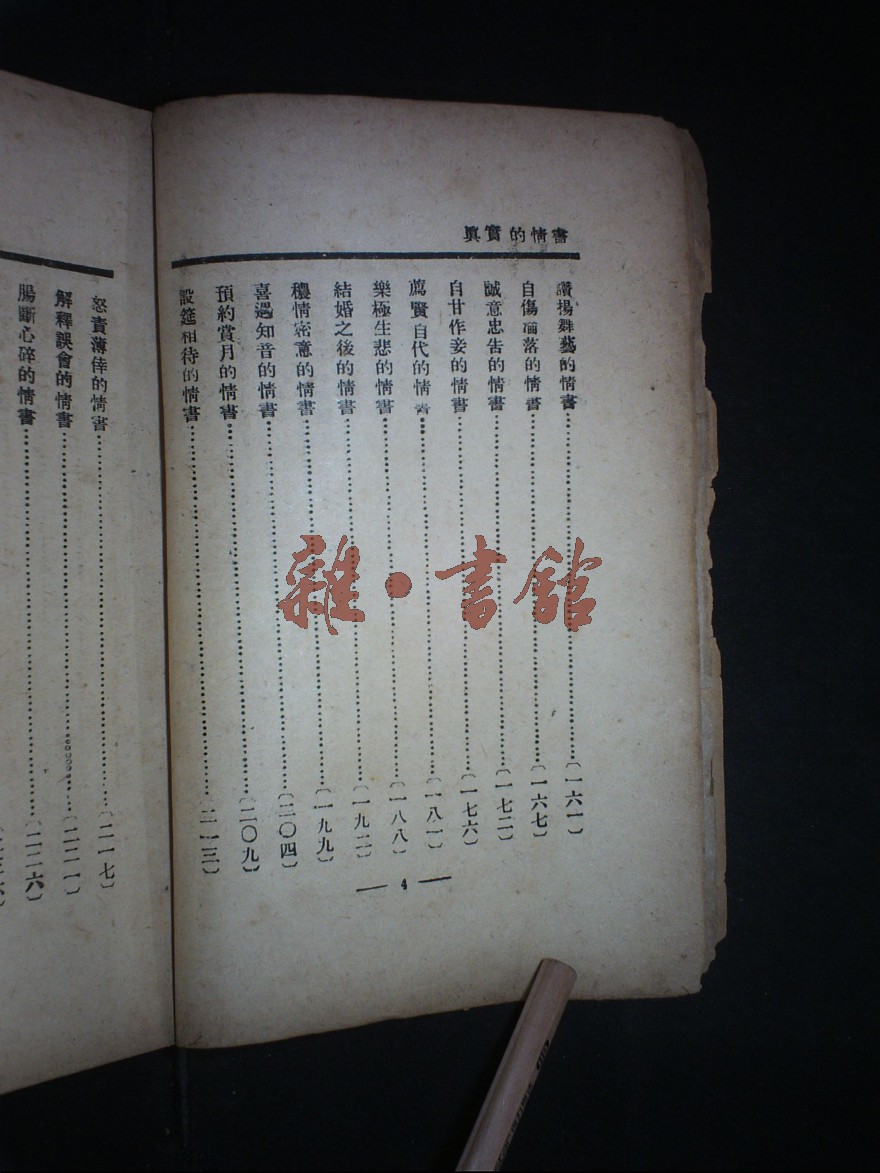 眞實的情書
讚揚舞藝的情書……〔一六一〕
自傷淪落的情書……〔一六七〕
誠意忠告的情書……〔一七二〕
自甘作妾的情書……〔一七六〕
薦賢自代的情書……〔一八一〕
樂極生悲的情書……〔一八八〕
結婚之後的情書……〔一九二〕
穠情密意的情書……〔一九九〕
喜遇知音的情書……〔二〇四〕
預約賞月的情書……〔二〇九〕
設筵相待的情書……〔二一三〕
— 4 —
怒責薄倖的情書……〔二一七〕
解釋誤會的情書……〔二二一〕
腸斷心碎的情書……〔二二六〕
雜·書館